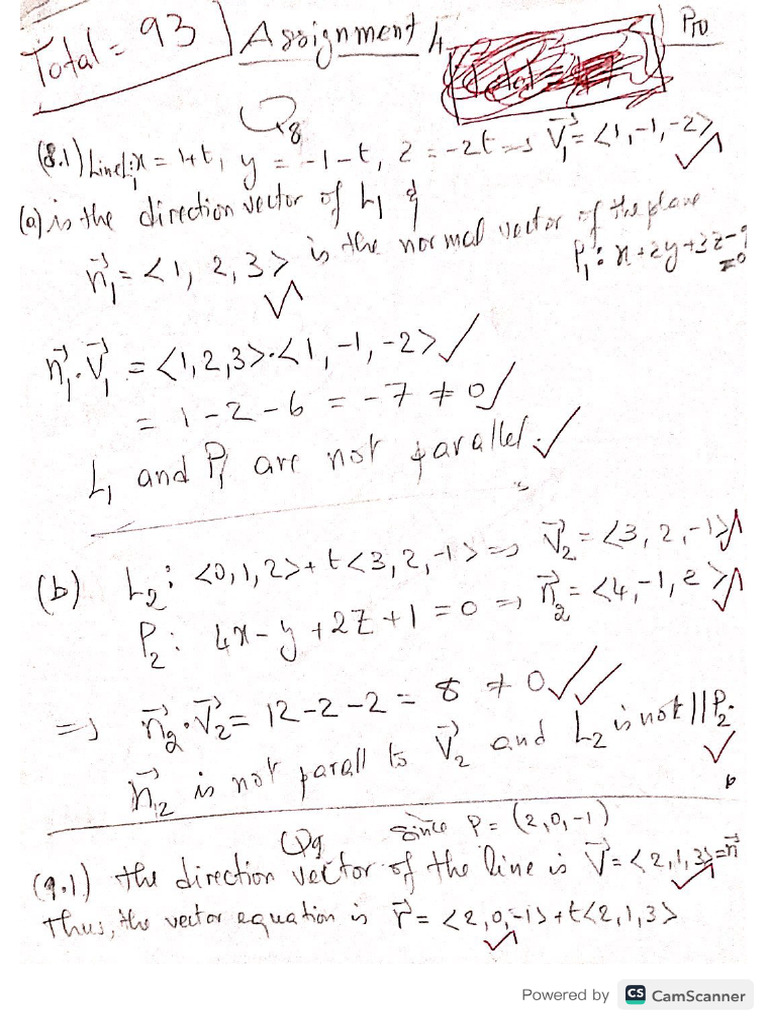 Total = 93
Assignment 4
PTO
Q8
(8.1) Line L₁: x = 1+t, y = -1-t, z = -2t ⇒ V⃗₁ = <1, -1, -2>
(a) is the direction vector of L₁ &
n⃗₁ = <1, 2, 3> is the normal vector of the plane
P₁: x+2y+3z-9
=0
n⃗₁·V⃗₁ = <1,2,3>·<1, -1, -2>
= 1 - 2 - 6 = -7 ≠ 0
L₁ and P₁ are not parallel.
(b) L₂: <0,1,2> + t<3, 2, -1> ⇒ V⃗₂ = <3, 2, -1>
P₂: 4x - y + 2z + 1 = 0 ⇒ n⃗₂ = <4, -1, 2>
⇒ n⃗₂·V⃗₂ = 12 - 2 - 2 = 8 ≠ 0
n⃗₂ is not parall to V⃗₂ and L₂ is not || P₂.
Q9 since P = (2,0,-1)
(9.1) the direction vector of the line is V⃗ = <2,1,3> = n⃗
Thus, the vector equation is r⃗ = <2,0,-1> + t<2,1,3>
Powered by CS CamScanner